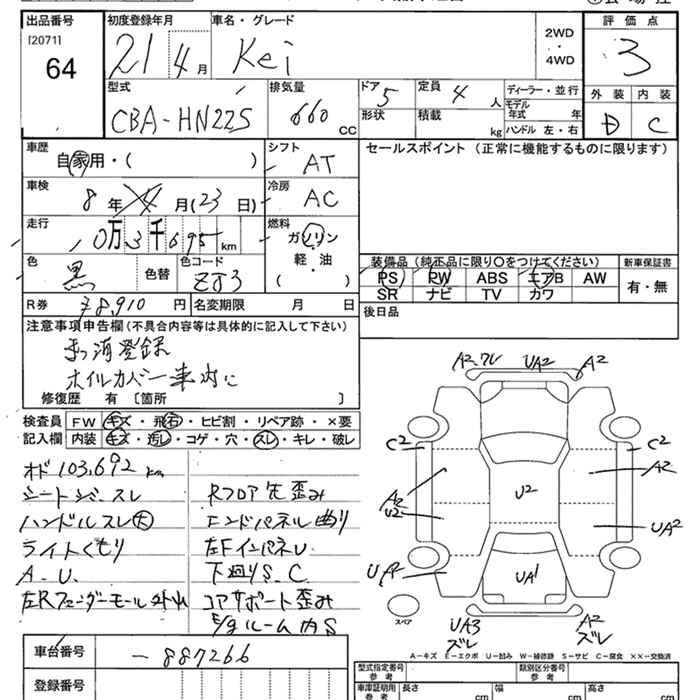 出品番号 初度登録年月 車名・グレード 2WD・4WD 評価点
[2071]
64 21 4月 Kei 3
型式 排気量 ドア 5 定員 4人 ディーラー・並行 外装 内装
CBA-HN22S 660 CC 形状 積載 kg モデル年式 年 D C
ハンドル 左・右
車歴 シフト セールスポイント (正常に機能するものに限ります)
自家用・( ) AT
車検 冷房
8年 4月(23日) AC
走行 燃料
10万3千695km ガソリン
軽・油
( )
色 色替 色コード 装備品 (純正品に限り○をつけてください) 新車保証書
黒 ZJ3 PS PW ABS エアB AW 有・無
SR ナビ TV カワ
R券 78,910円 名変期限 月 日 後日品
注意事項申告欄(不具合内容等は具体的に記入して下さい)
まっ消登録
ホイルカバー車内に
修復歴 有〔箇所 〕
検査員 FW キズ・飛石・ヒビ割・リペア跡・×要
記入欄 内装 キズ・汚レ・コゲ・穴・スレ・キレ・破レ
オド103,692km
シートジミ スレ Rフロア先歪み
ハンドルスレ大 エンドパネル曲り
ライトくもり 左FインパネU
A.U. 下廻りS.C
左Rフェンダーモール外れ コアサポート歪み
E/gルーム内S
A2.ワレ UA2 A2
C2 C2
A2 A2
U2 U2
UA2
UA2 UA1
スペア
UA3 A2
ズレ ズレ
A-キズ E-エクボ U-凹み W-補修跡 S-サビ C-腐食 XX-交換済
車台番号 -887266
型式指定番号 参考 類別区分番号 参考
登録番号
車庫証明用 参考 長さ cm 幅 cm 高さ cm